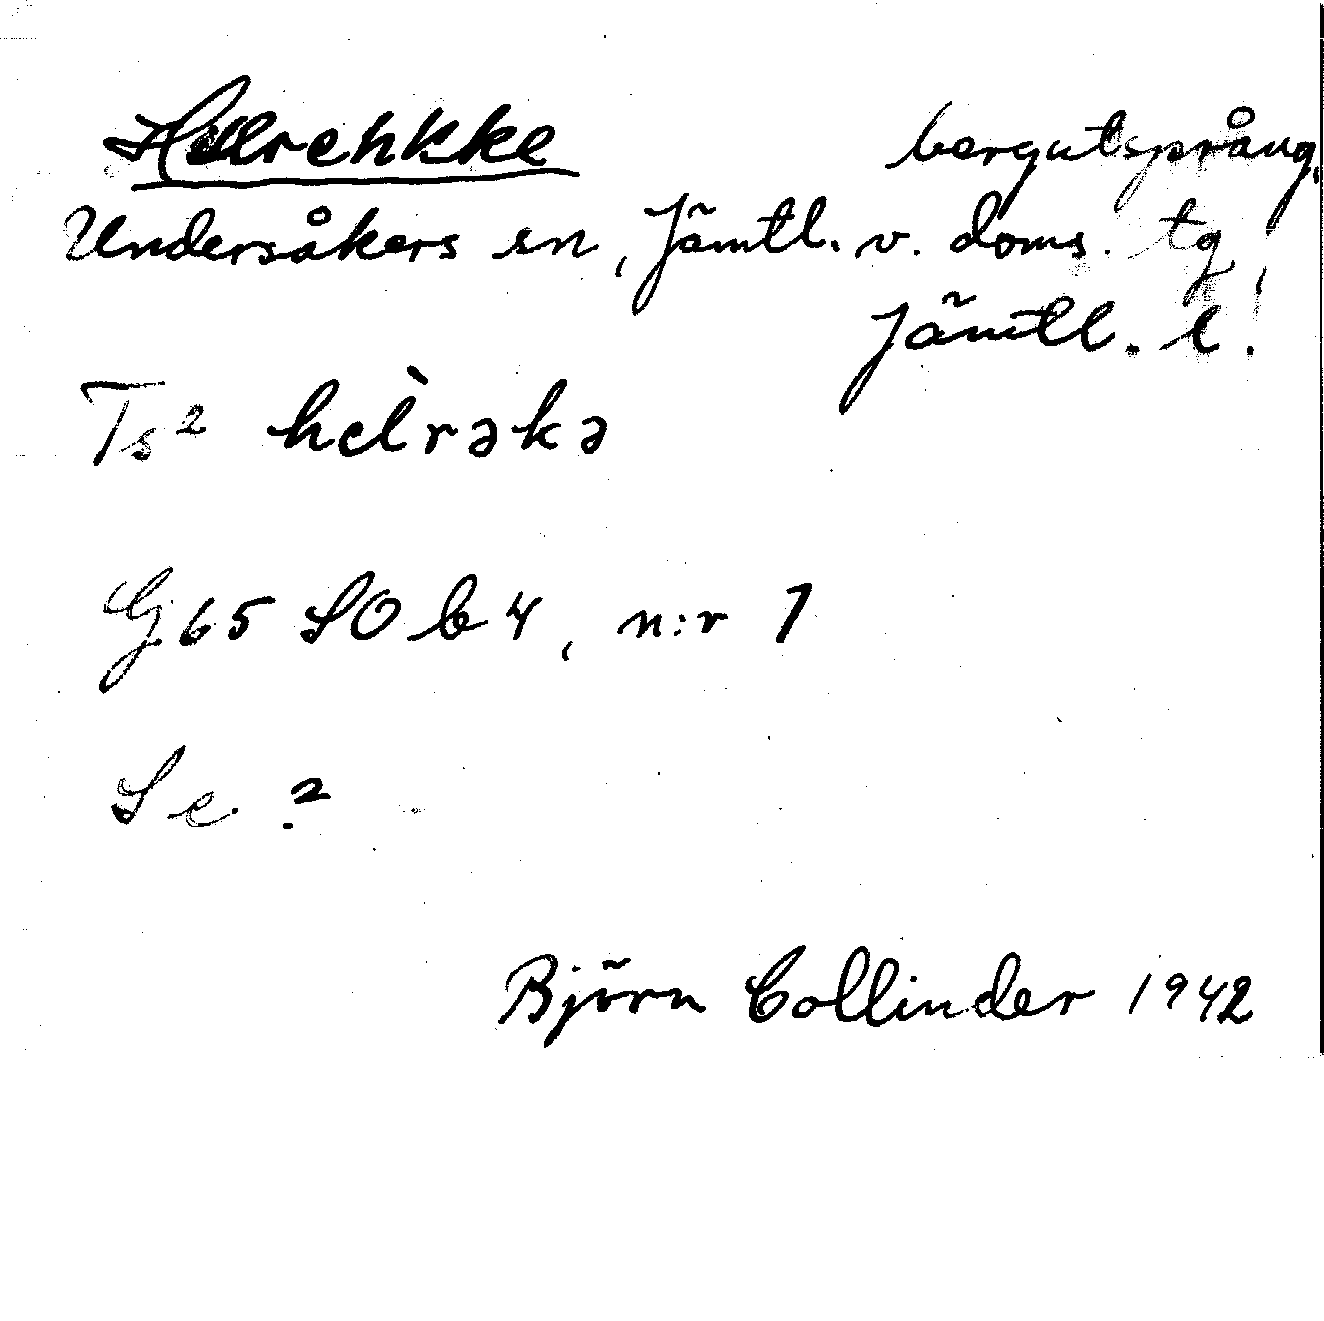 Helrehkke bergutsprång,
Undersåkers sn, Jämtl. v. doms. tg
Jämtl. l!
Ts² hel̀rəkə
G 65 SO b 4, n:r 1
Se ?
Björn Collinder 1942